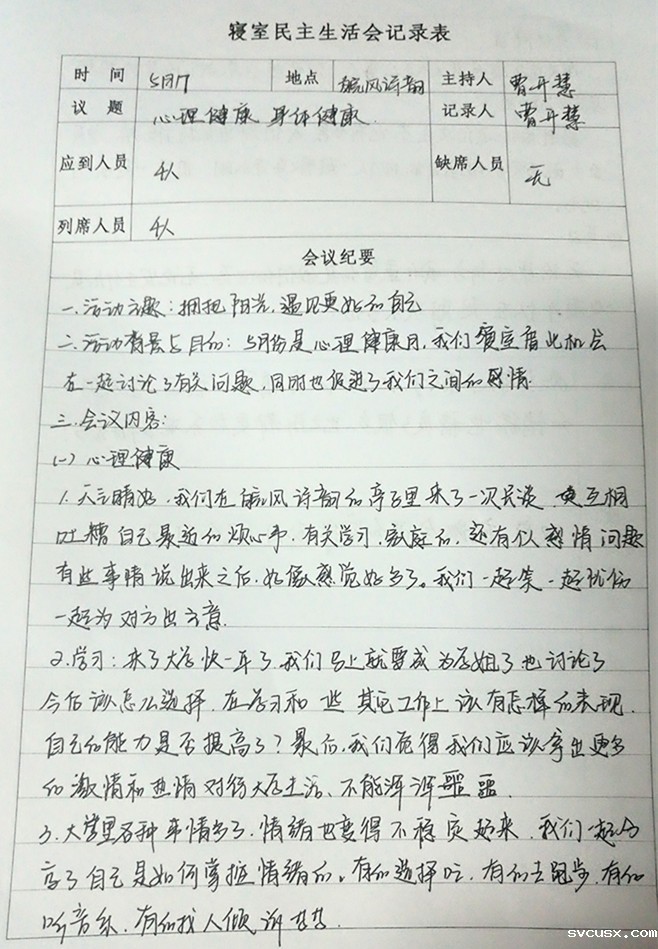 寝室民主生活会记录表
时间 5月17 地点 旅风诗韵 主持人 曹开慧
议题 心理健康 身体健康. 记录人 曹开慧
应到人员 4人 缺席人员 无
列席人员 4人
会议纪要
一.活动主题:拥抱阳光,遇见更好的自己
二.活动背景与目的:5月份是心理健康月,我们寝室借此机会
在一起讨论了有关问题,同时也促进了我们之间的感情.
三.会议内容:
(一)心理健康
1.天气晴好,我们在旅风诗韵的亭子里来了一次长谈,互相
吐糟自己最近的烦心事,有关学习,家庭的,还有似感情问题
有些事情说出来之后,好像感觉好多了。我们一起笑一起忧伤
一起为对方出主意.
2.学习:来了大学快一年了,我们马上就要成为学姐了也讨论了
今后该怎么选择,在学习和一些其它工作上该有怎样的表现.
自己的能力是否提高了?最后,我们觉得我们应该拿出更多
的激情和热情对待大学生活、不能浑浑噩噩.
3.大学里各种事情多了,情绪也变得不稳定起来,我们一起分
享了自己是如何掌控情绪的。有的选择吃,有的去跑步,有的
听音乐,有的找人倾诉等等.
svcusx.com